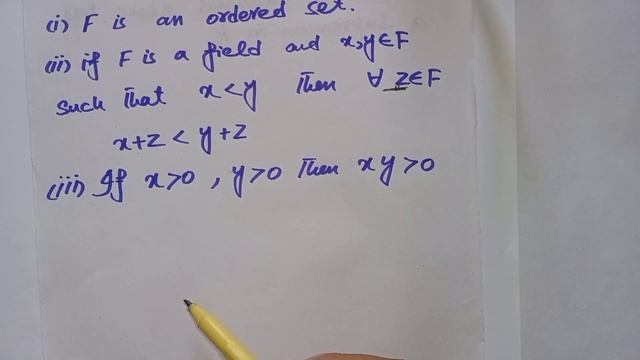 (i) F is an ordered set.
(ii) if F is a field and x,y∈F
such that x<y Then ∀ z∈F
x+z < y+z
(iii) If x>0 , y>0 Then xy>0